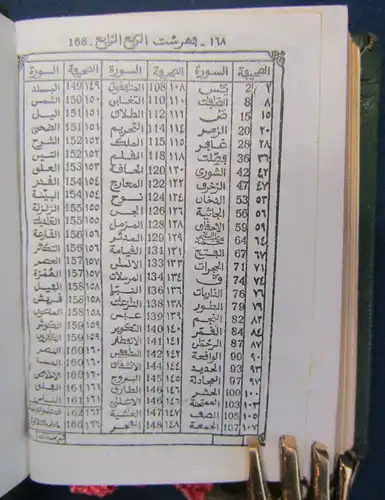 ١٦٨ - فهرشت الربع الرابع - 168
الصحيفة السورة الصحيفة السورة الصحيفة السورة
٢ 2 يس ١٠٨ 108 المنافقون ١٤٩ 149 البلد
٨ 8 الصافات ١١٠ 110 التغابن ١٥٠ 150 الشمس
١٥ 15 ص ١١٢ 112 الطلاق ١٥١ 151 اليل
٢٠ 20 الزمر ١١٤ 114 التحريم ١٥٢ 152 الضحى
٢٨ 28 غافر ١١٦ 116 الملك ١٥٢ 152 الشرح
٣٦ 36 فصلت ١١٨ 118 القلم ١٥٣ 153 التين
٤٢ 42 الشورى ١٢٠ 120 الحاقة ١٥٣ 153 العلق
٤٧ 47 الزخرف ١٢٢ 122 المعارج ١٥٤ 154 القدر
٥٣ 53 الدخان ١٢٤ 124 نوح ١٥٤ 154 البينة
٥٦ 56 الجاثية ١٢٦ 126 الجن ١٥٥ 155 الزلزلة
٥٩ 59 الاحقاف ١٢٨ 128 المزمل ١٥٥ 155 العاديات
٦٤ 64 ١٢٩ 129 المدثر ١٥٦ 156 القارعة
٦٧ 67 الفتح ١٣١ 131 القيامة ١٥٦ 156 التكاثر
٧١ 71 الحجرات ١٣٣ 133 الانسان ١٥٧ 157 العصر
٧٤ 74 ق ١٣٤ 134 المرسلات ١٥٧ 157 الهمزة
٧٦ 76 الذاريات ١٣٦ 136 النبأ ١٥٨ 158 الفيل
٧٩ 79 الطور ١٣٨ 138 النازعات ١٥٨ 158 قريش
٨٢ 82 النجم ١٣٩ 139 عبس ١٥٨ 158 الماعون
٨٤ 84 القمر ١٤٠ 140 التكوير ١٥٩ 159 الكوثر
٨٧ 87 الرحمن ١٤١ 141 الانفطار ١٥٩ 159 الكافرون
٩٠ 90 الواقعة ١٤٢ 142 المطففين ١٦٠ 160 النصر
٩٣ 93 الحديد ١٤٤ 144 الانشقاق ١٦٠ 160 المسد
٩٧ 97 المجادلة ١٤٥ 145 البروج ١٦٠ 160 الاخلاص
١٠٠ 100 الحشر ١٤٦ 146 الطارق ١٦١ 161 الفلق
١٠٣ 103 الممتحنة ١٤٦ 146 الاعلى ١٦١ 161 الناس
١٠٥ 105 الصف ١٤٧ 147 الغاشية ١٦٢ 162
١٠٧ 107 الجمعة ١٤٨ 148 الفجر ١٦٦ 166